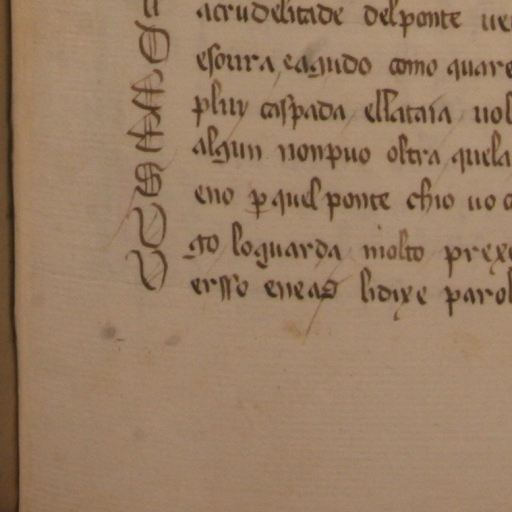 a crudelitade del ponte ue
E soura, e agudo como quare
E pluy ca spada e llataia uol
E algun non puo oltra quela
E no p quel ponte ch io uo
V go lo guarda molto prexe
V ersso eneas li dixe parol